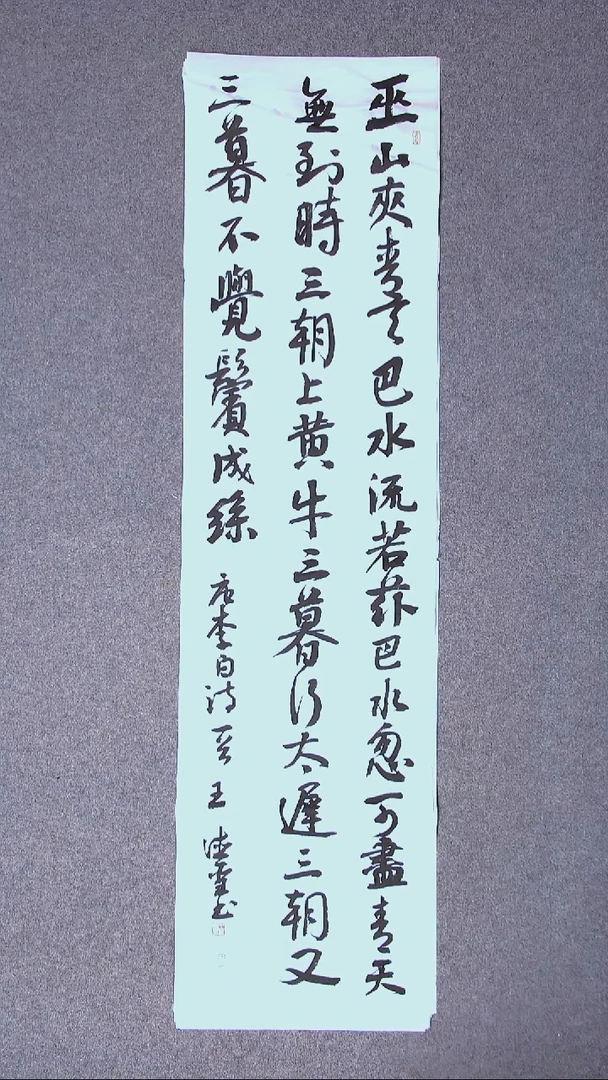 巫山夾青天巴水流若茲巴水忽可盡青天
無到時三朝上黄牛三暮行太遲三朝又
三暮不覺鬢成絲
唐李白詩一首 王 書